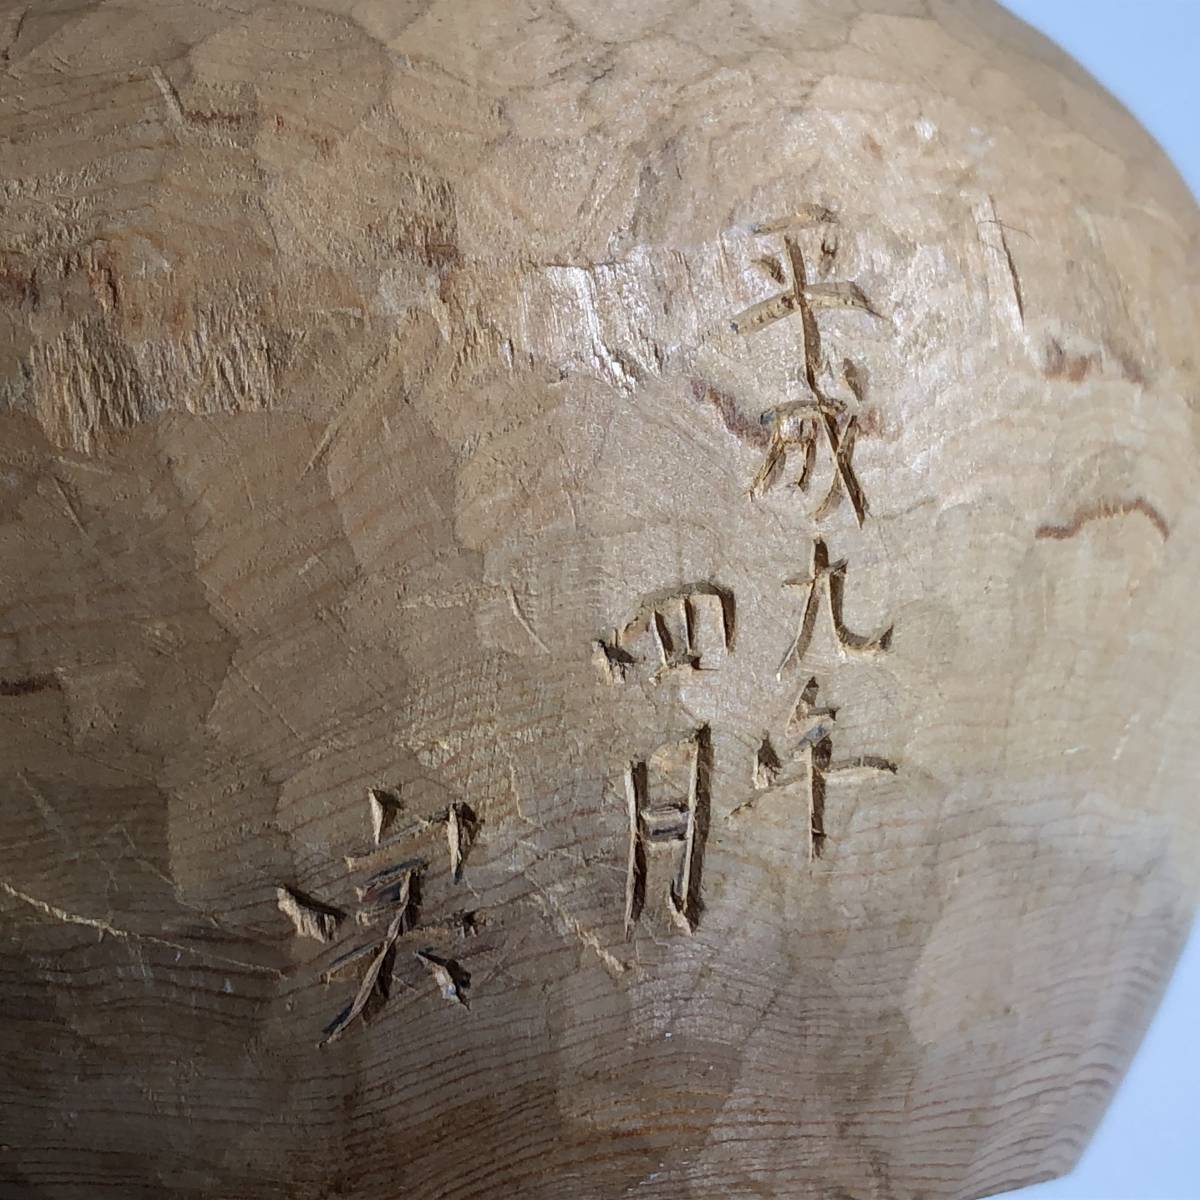 平成九年
四月